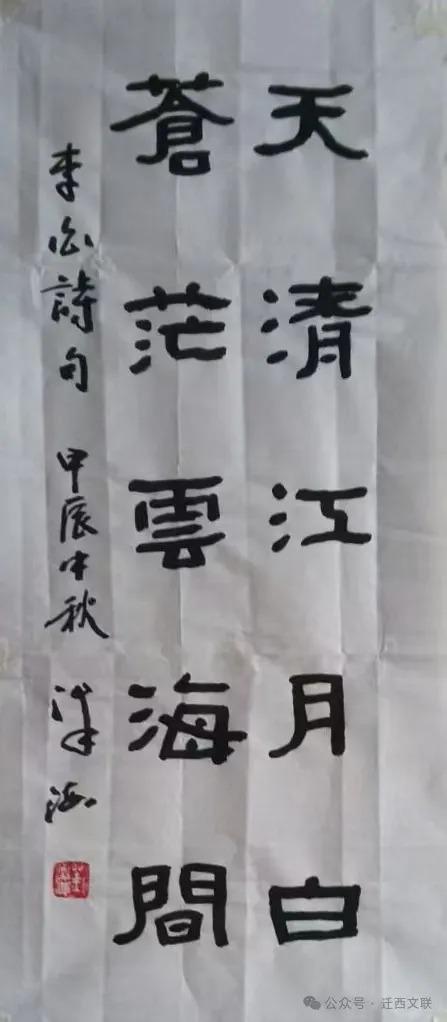 天清江月白
蒼茫雲海間
李白詩句 甲辰中秋 海
公众号·迁西文联